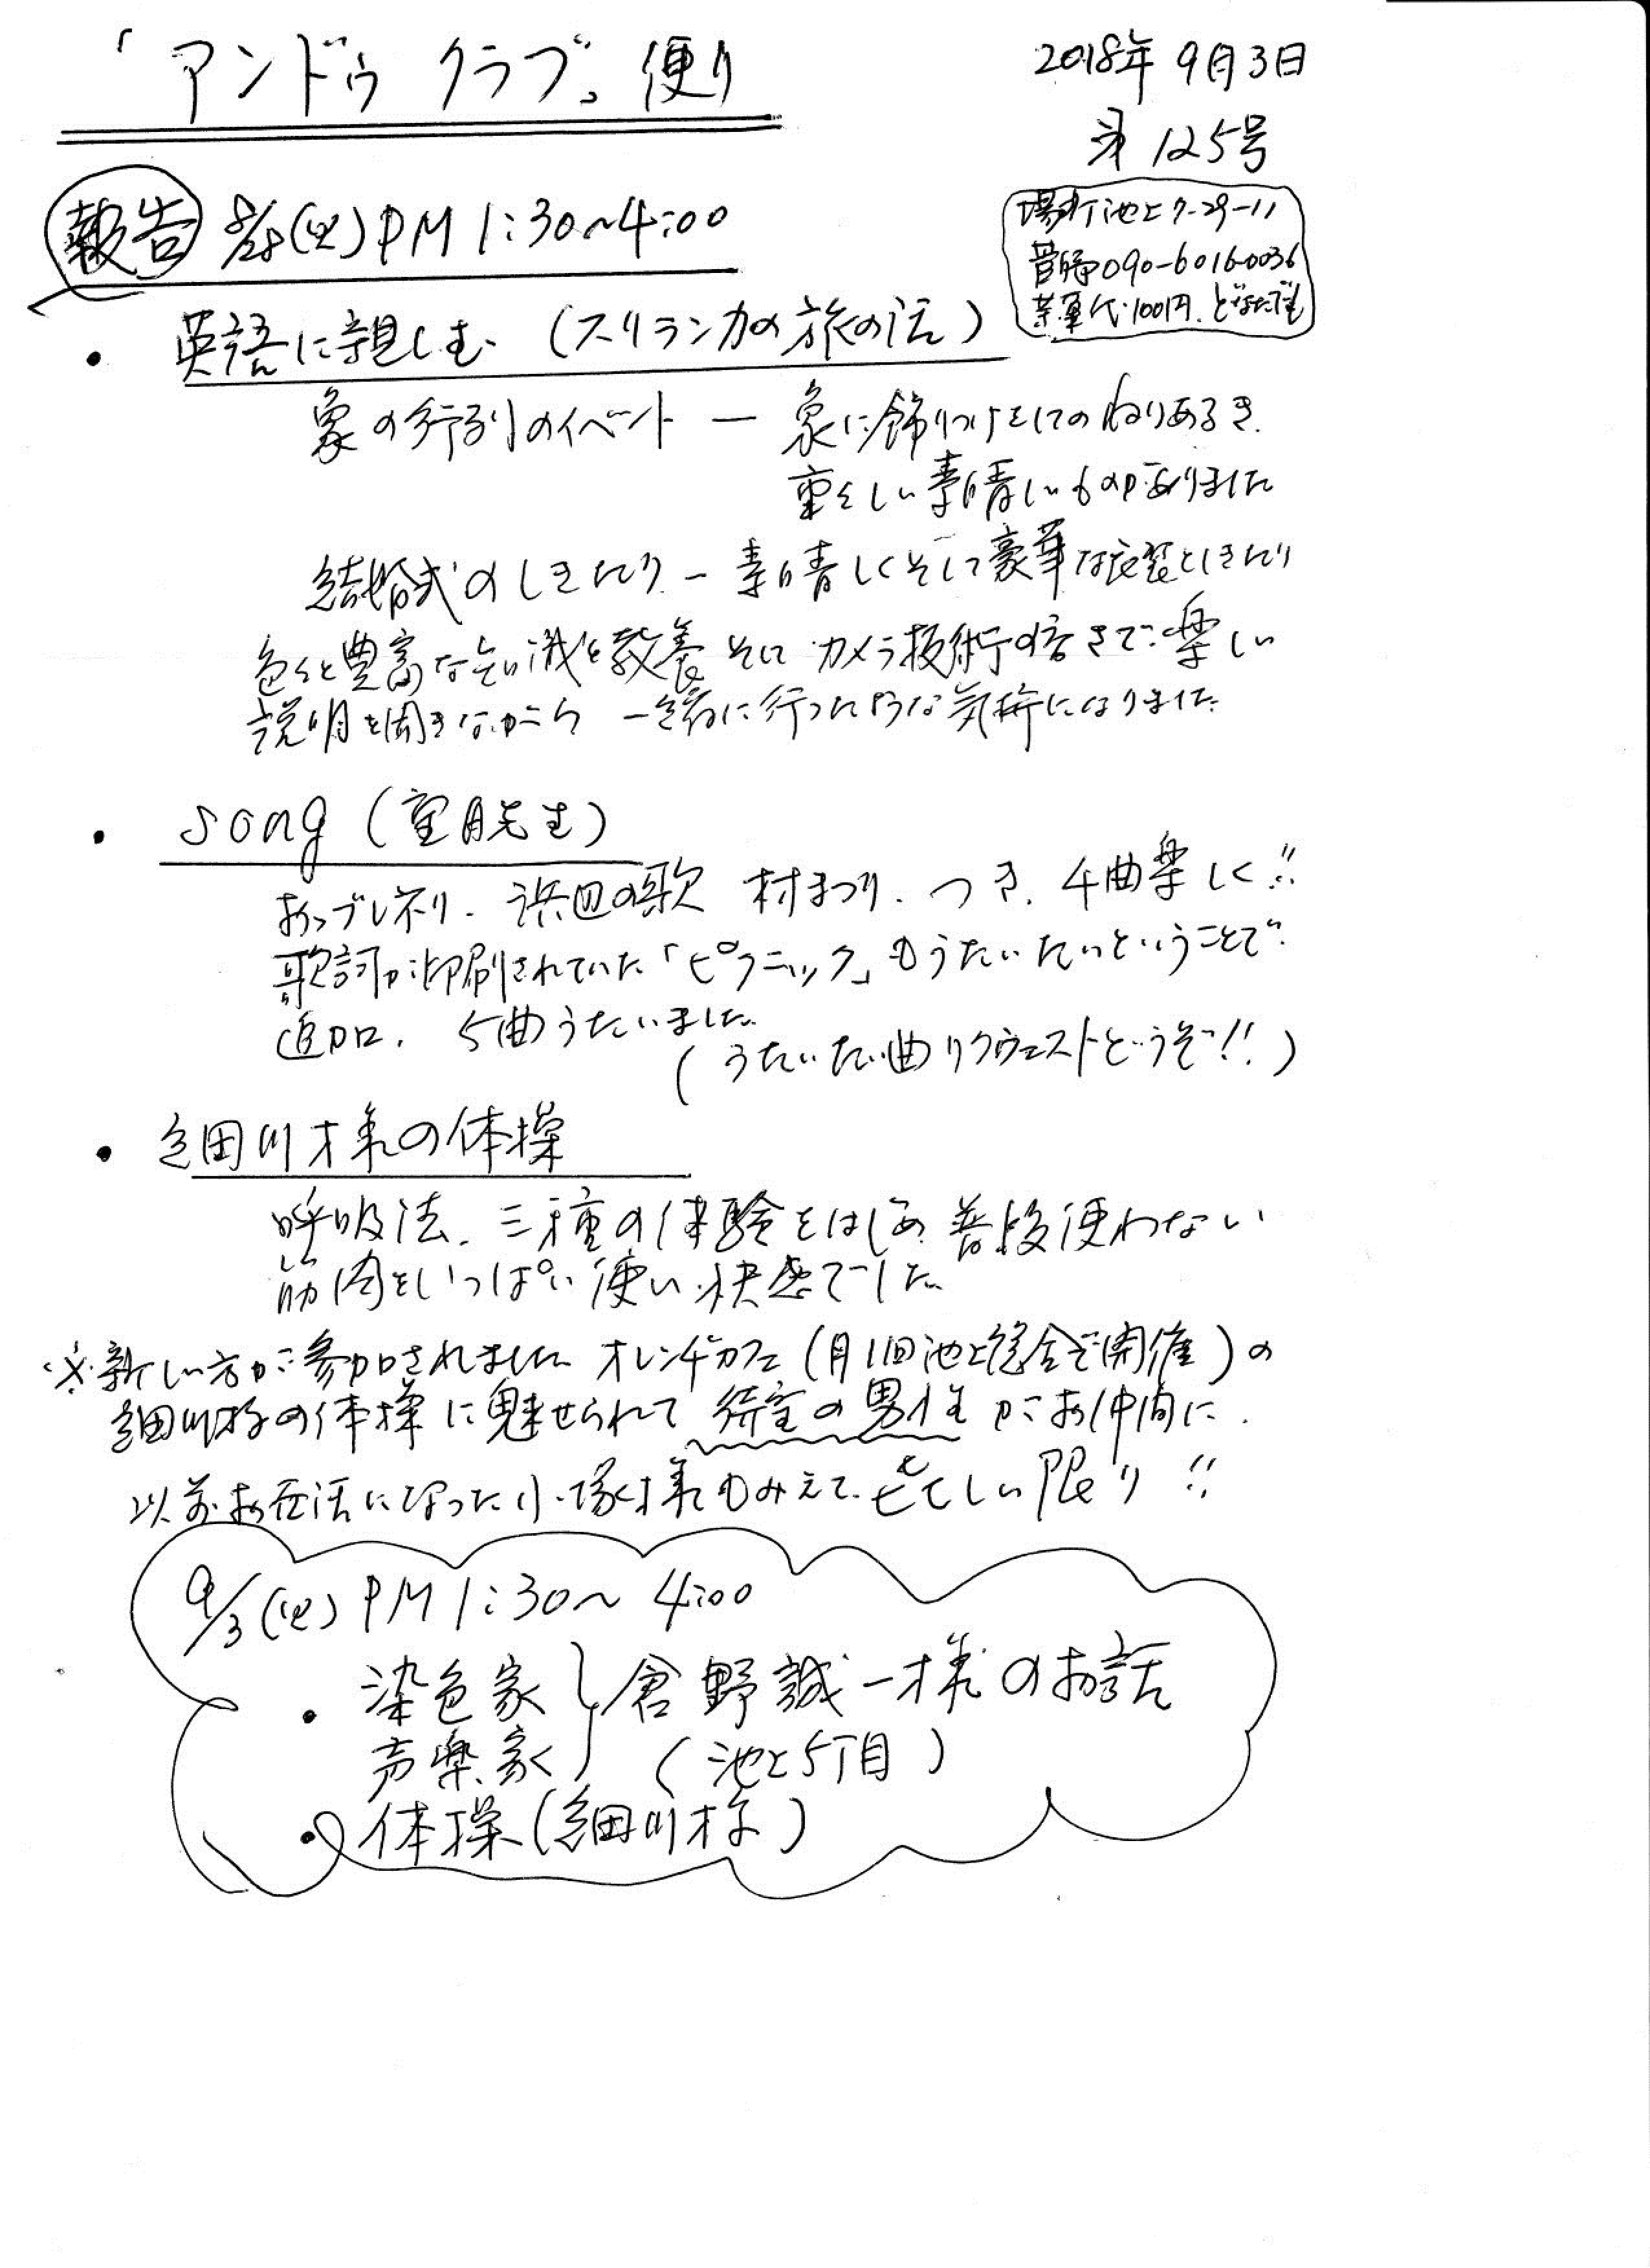 「アンドゥ クラブ」便り
2018年9月3日
第125号
報告 8/28(火)PM1:30~4:00
場所池上7-29-11
菅野090-6016-0036
茶菓代100円.どなたでも
・英語に親しむ(スリランカの旅の話)
象の行列のイベント ー 象に飾りつけをしてのねりあるき.
重々しい素晴しいものがありました
結婚式のしきたり ー 素晴しくそして豪華な衣装としきたり
色々と豊富な知識と教養 そして カメラ技術の高さで楽しい
説明を聞きながら 一緒に行ったような気持になりました.
・song(望月先生)
おゝブレネリ.浜辺の歌 村まつり.つき.4曲楽しく!!
歌詞が印刷されていた「ピクニック」もうたいたいということで
追加.5曲うたいました
(うたいたい曲リクウェストどうぞ!!)
・細川様の体操
呼吸法.三種の体験をはじめ 普段使わない
筋肉をいっぱい使い快感でした
※新しい方が参加されました オレンヂカフェ(月1回池上会舘で開催)の
細川様の体操に魅せられて 待望の男性がお仲間に.
以前お世話になった小塚様もみえて.喜しい限り!!
9/3(火)PM1:30~4:00
・染色家
声楽家
倉野誠一様のお話
(池上5丁目)
・体操(細川様)